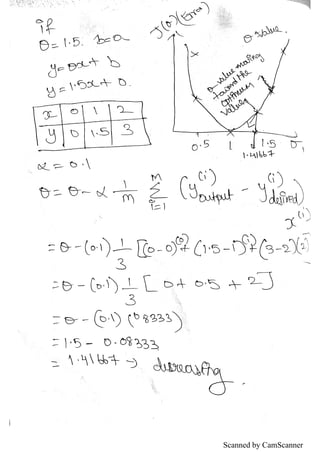 if
θ = 1.5. b = a
y = θx + b
y = 1.5x + 0.
x 0 1 2
y 0 1.5 3
J(θ) (Error)
θ value.
θ value moving toward the optimum value
0.5 1 1.5 θ1
1.41667
α = 0.1
θ = θ - α 1/m Σ(i=1 to M) (y(i) output - y(i) desired) x(i)
= θ - (0.1) 1/3 [(0-0)(0) + (1.5-1)(1) + (3-2)(2)]
= θ - (0.1) 1/3 [0 + 0.5 + 2]
= θ - (0.1) (0.8333)
= 1.5 - 0.08333
= 1.41667 → decreasing.
Scanned by CamScanner